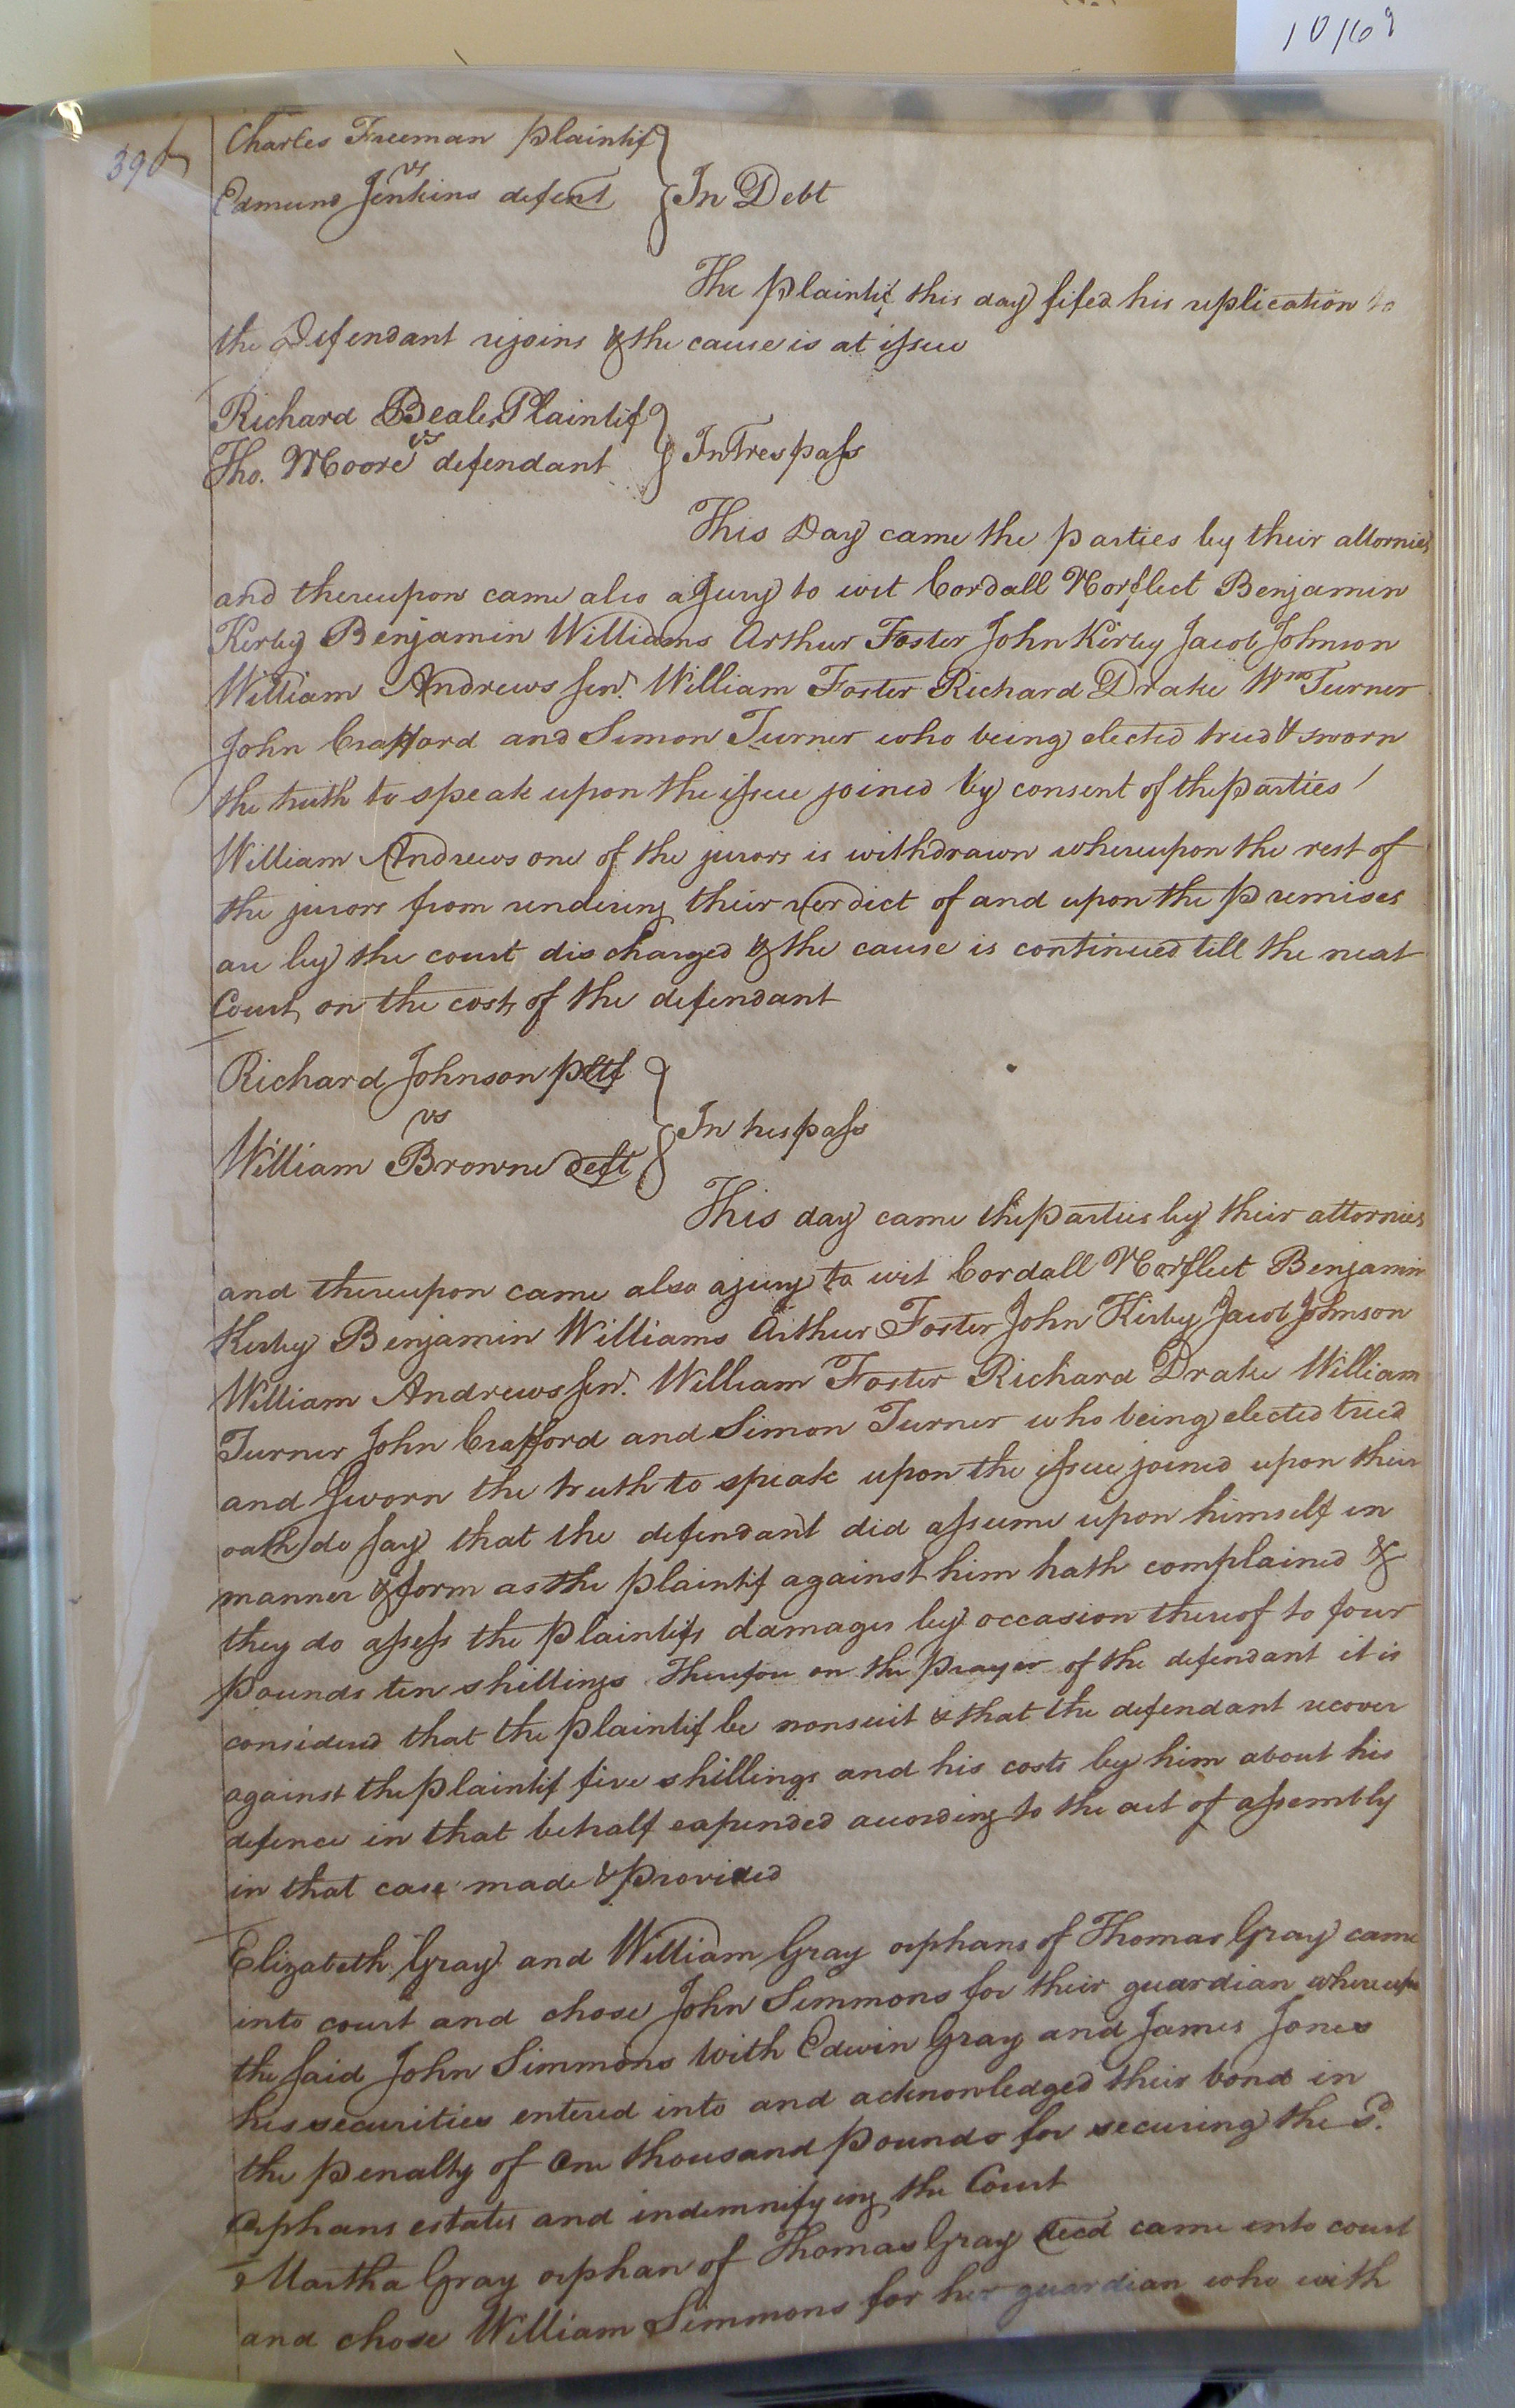 10169
396
Charles Freeman plaintif
vs
Edmund Jenkins defent
In Debt
The plaintif this day filed his replication to
the Defendant rejoins & the cause is at issue
Richard Beale Plaintif
vs
Tho. Moore defendant
In Trespass
This Day came the parties by their attornies
and thereupon came also a Jury to wit Cordall Norfleet Benjamin
Kirby Benjamin Williams Arthur Foster John Kirby Jacob Johnson
William Andrews senr. William Foster Richard Drake Wm Turner
John Crafford and Simon Turner who being elected tried & sworn
the truth to speak upon the issue joined by consent of the parties
William Andrews one of the jurors is withdrawn whereupon the rest of
the jurors from rendering their verdict of and upon the premises
are by the court discharged & the cause is continued till the next
Court on the costs of the defendant
Richard Johnson pltf
vs
William Browne deft
In trespass
This day came the parties by their attornies
and thereupon came also a jury to wit Cordall Norfleet Benjamin
Kirby Benjamin Williams Arthur Foster John Kirby Jacob Johnson
William Andrews senr. William Foster Richard Drake William
Turner John Crafford and Simon Turner who being elected tried
and sworn the truth to speak upon the issue joined upon their
oath do say that the defendant did assume upon himself in
manner & form as the plaintif against him hath complained &
they do assess the plaintifs damages by occasion thereof to four
pounds ten shillings Therefore on the prayer of the defendant it is
considered that the plaintif be nonsuit & that the defendant recover
against the plaintif five shillings and his costs by him about his
defence in that behalf expended according to the act of assembly
in that case made & provided
Elizabeth Gray and William Gray orphans of Thomas Gray came
into court and chose John Simmons for their guardian whereupon
the said John Simmons with Edwin Gray and James Jones
his securities entered into and acknowledged their bond in
the penalty of One thousand pounds for securing the sd.
Orphans estates and indemnifying the Court
Martha Gray orphan of Thomas Gray decd came into court
and chose William Simmons for her guardian who with